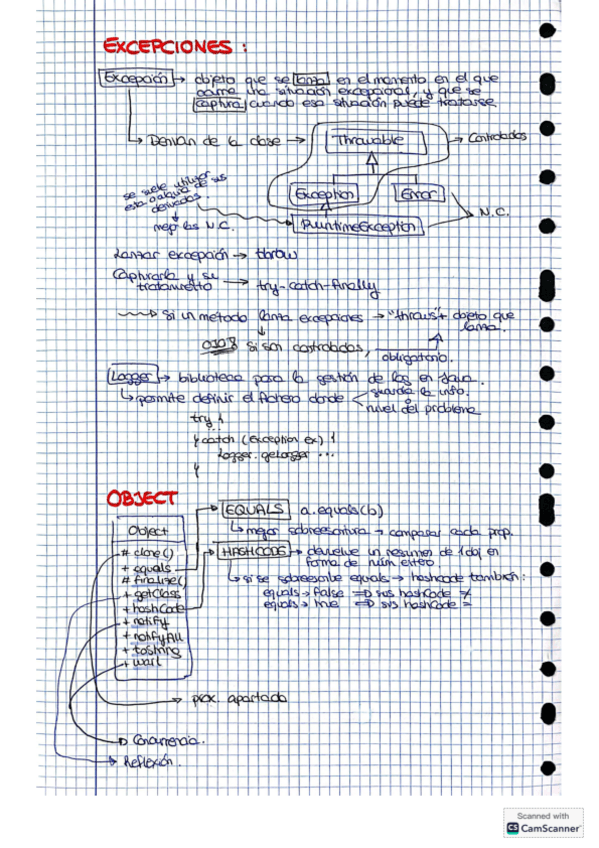 EXCEPCIONES :
Excepción → objeto que se lanza en el momento en el que
ocurre una situación excepcional, y que se
captura cuando esa situación puede tratarse.
Derivan de la clase → Throwable → Controlados
se suele utilizar
esta o alguna de sus
derivadas
mejor las N.C.
Exception Error
RuntimeException
N.C.
Lanzar excepción → throw
Capturarla y su
tratamiento → try-catch-finally
Si un método lanza excepciones → "throws" + objeto que
lanza.
OJO! Si son controladas, obligatorio.
Logger → biblioteca para la gestión de log en Java.
permite definir el fichero donde
guarda la info.
nivel del problema
try {
...
} catch (Exception ex) {
Logger.getLogger ...
}
OBJECT
Object
# clone()
+ equals
# finalize()
+ getClass
+ hashCode
+ notify
+ notifyAll
+ toString
+ wait
EQUALS a.equals(b)
mejor sobreescritura → comparar cada prop.
HASHCODE → devuelve un resumen de 1 obj en
forma de núm entero
si se sobreescribe equals → hashCode también:
equals → false ⇒ sus hashCode ≠
equals → true ⇒ sus hashCode =
próx. apartado
Concurrencia.
Reflexión.
Scanned with
CS CamScanner